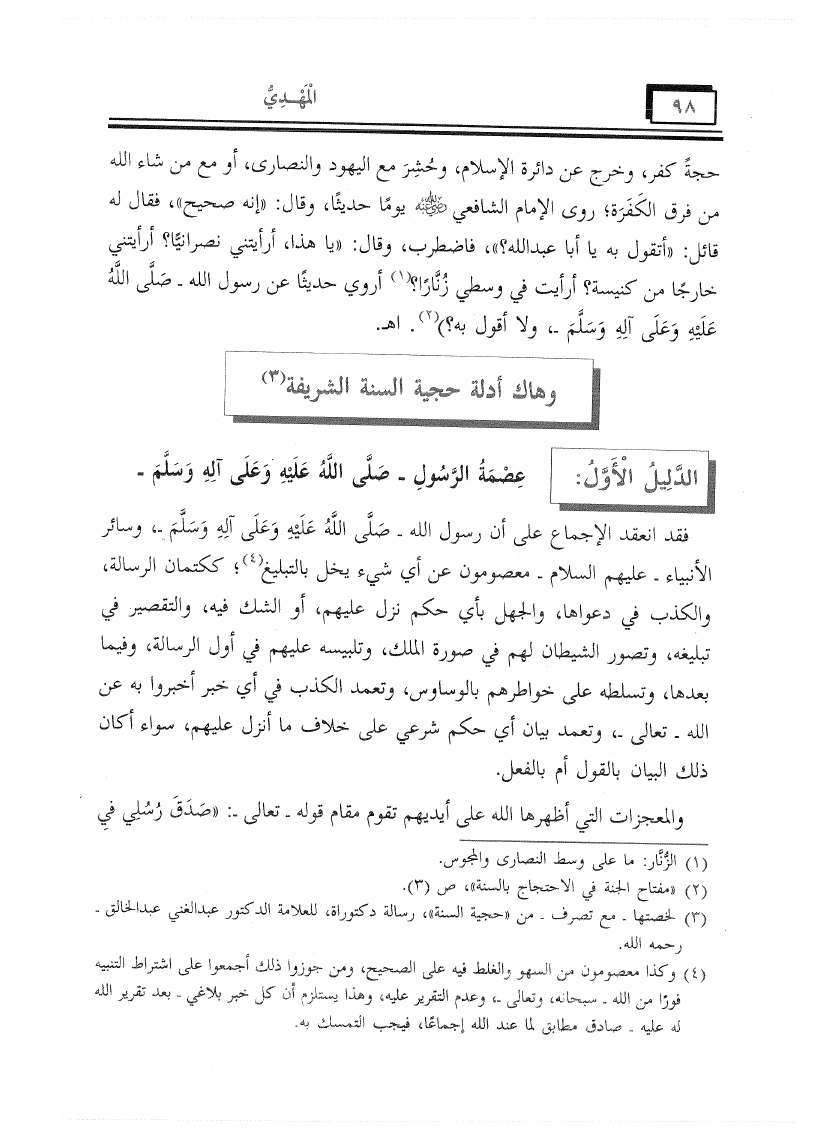 ٩٨
الْمَهْـدِيُّ
حجةً كفر، وخرج عن دائرة الإسلام، وحُشِرَ مع اليهود والنصارى، أو مع من شاء الله
من فرق الكَفَرَة؛ روى الإمام الشافعي رضي الله عنه يومًا حديثًا، وقال: «إنه صحيح»، فقال له
قائل: «أتقول به يا أبا عبدالله؟»، فاضطرب، وقال: «يا هذا، أرأيتني نصرانيًّا؟ أرأيتني
خارجًا من كنيسة؟ أرأيت في وسطي زُنَّارًا؟(١) أروي حديثًا عن رسول الله ـ صَلَّى اللَّهُ
عَلَيْهِ وَعَلَى آلِهِ وَسَلَّمَ ـ، ولا أقول به؟)(٢). اهـ.
وهاك أدلة حجية السنة الشريفة(٣)
الدَّلِيلُ الْأَوَّلُ: عِصْمَةُ الرَّسُولِ ـ صَلَّى اللَّهُ عَلَيْهِ وَعَلَى آلِهِ وَسَلَّمَ ـ
فقد انعقد الإجماع على أن رسول الله ـ صَلَّى اللَّهُ عَلَيْهِ وَعَلَى آلِهِ وَسَلَّمَ ـ، وسائر
الأنبياء ـ عليهم السلام ـ معصومون عن أي شيء يخل بالتبليغ(٤)؛ ككتمان الرسالة،
والكذب في دعواها، والجهل بأي حكم نزل عليهم، أو الشك فيه، والتقصير في
تبليغه، وتصور الشيطان لهم في صورة الملك، وتلبيسه عليهم في أول الرسالة، وفيما
بعدها، وتسلطه على خواطرهم بالوساوس، وتعمد الكذب في أي خبر أخبروا به عن
الله ـ تعالى ـ، وتعمد بيان أي حكم شرعي على خلاف ما أنزل عليهم، سواء أكان
ذلك البيان بالقول أم بالفعل.
والمعجزات التي أظهرها الله على أيديهم تقوم مقام قوله ـ تعالى ـ: «صَدَقَ رُسُلِي فِي
(١) الزُّنَّار: ما على وسط النصارى والمجوس.
(٢) «مفتاح الجنة في الاحتجاج بالسنة»، ص (٣).
(٣) لخصتها ـ مع تصرف ـ من «حجية السنة»، رسالة دكتوراة، للعلامة الدكتور عبدالغني عبدالخالق ـ
رحمه الله.
(٤) وكذا معصومون من السهو والغلط فيه على الصحيح، ومن جوزوا ذلك أجمعوا على اشتراط التنبيه
فورًا من الله ـ سبحانه، وتعالى ـ، وعدم التقرير عليه، وهذا يستلزم أن كل خبر بلاغي ـ بعد تقرير الله
له عليه ـ صادق مطابق لما عند الله إجماعًا، فيجب التمسك به.